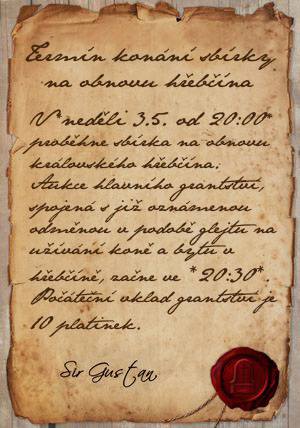 Termín konání sbírky
na obnovu hřebčína
V neděli 3.5. od 20:00*
proběhne sbírka na obnovu
královského hřebčína.
Aukce hlavního grantství,
spojená s již oznámenou
odměnou v podobě glejtu na
užívání koně a bytu v
hřebčíně, začne ve *20:30*.
Počáteční vklad grantství je
10 platinek.
Sir Gustan